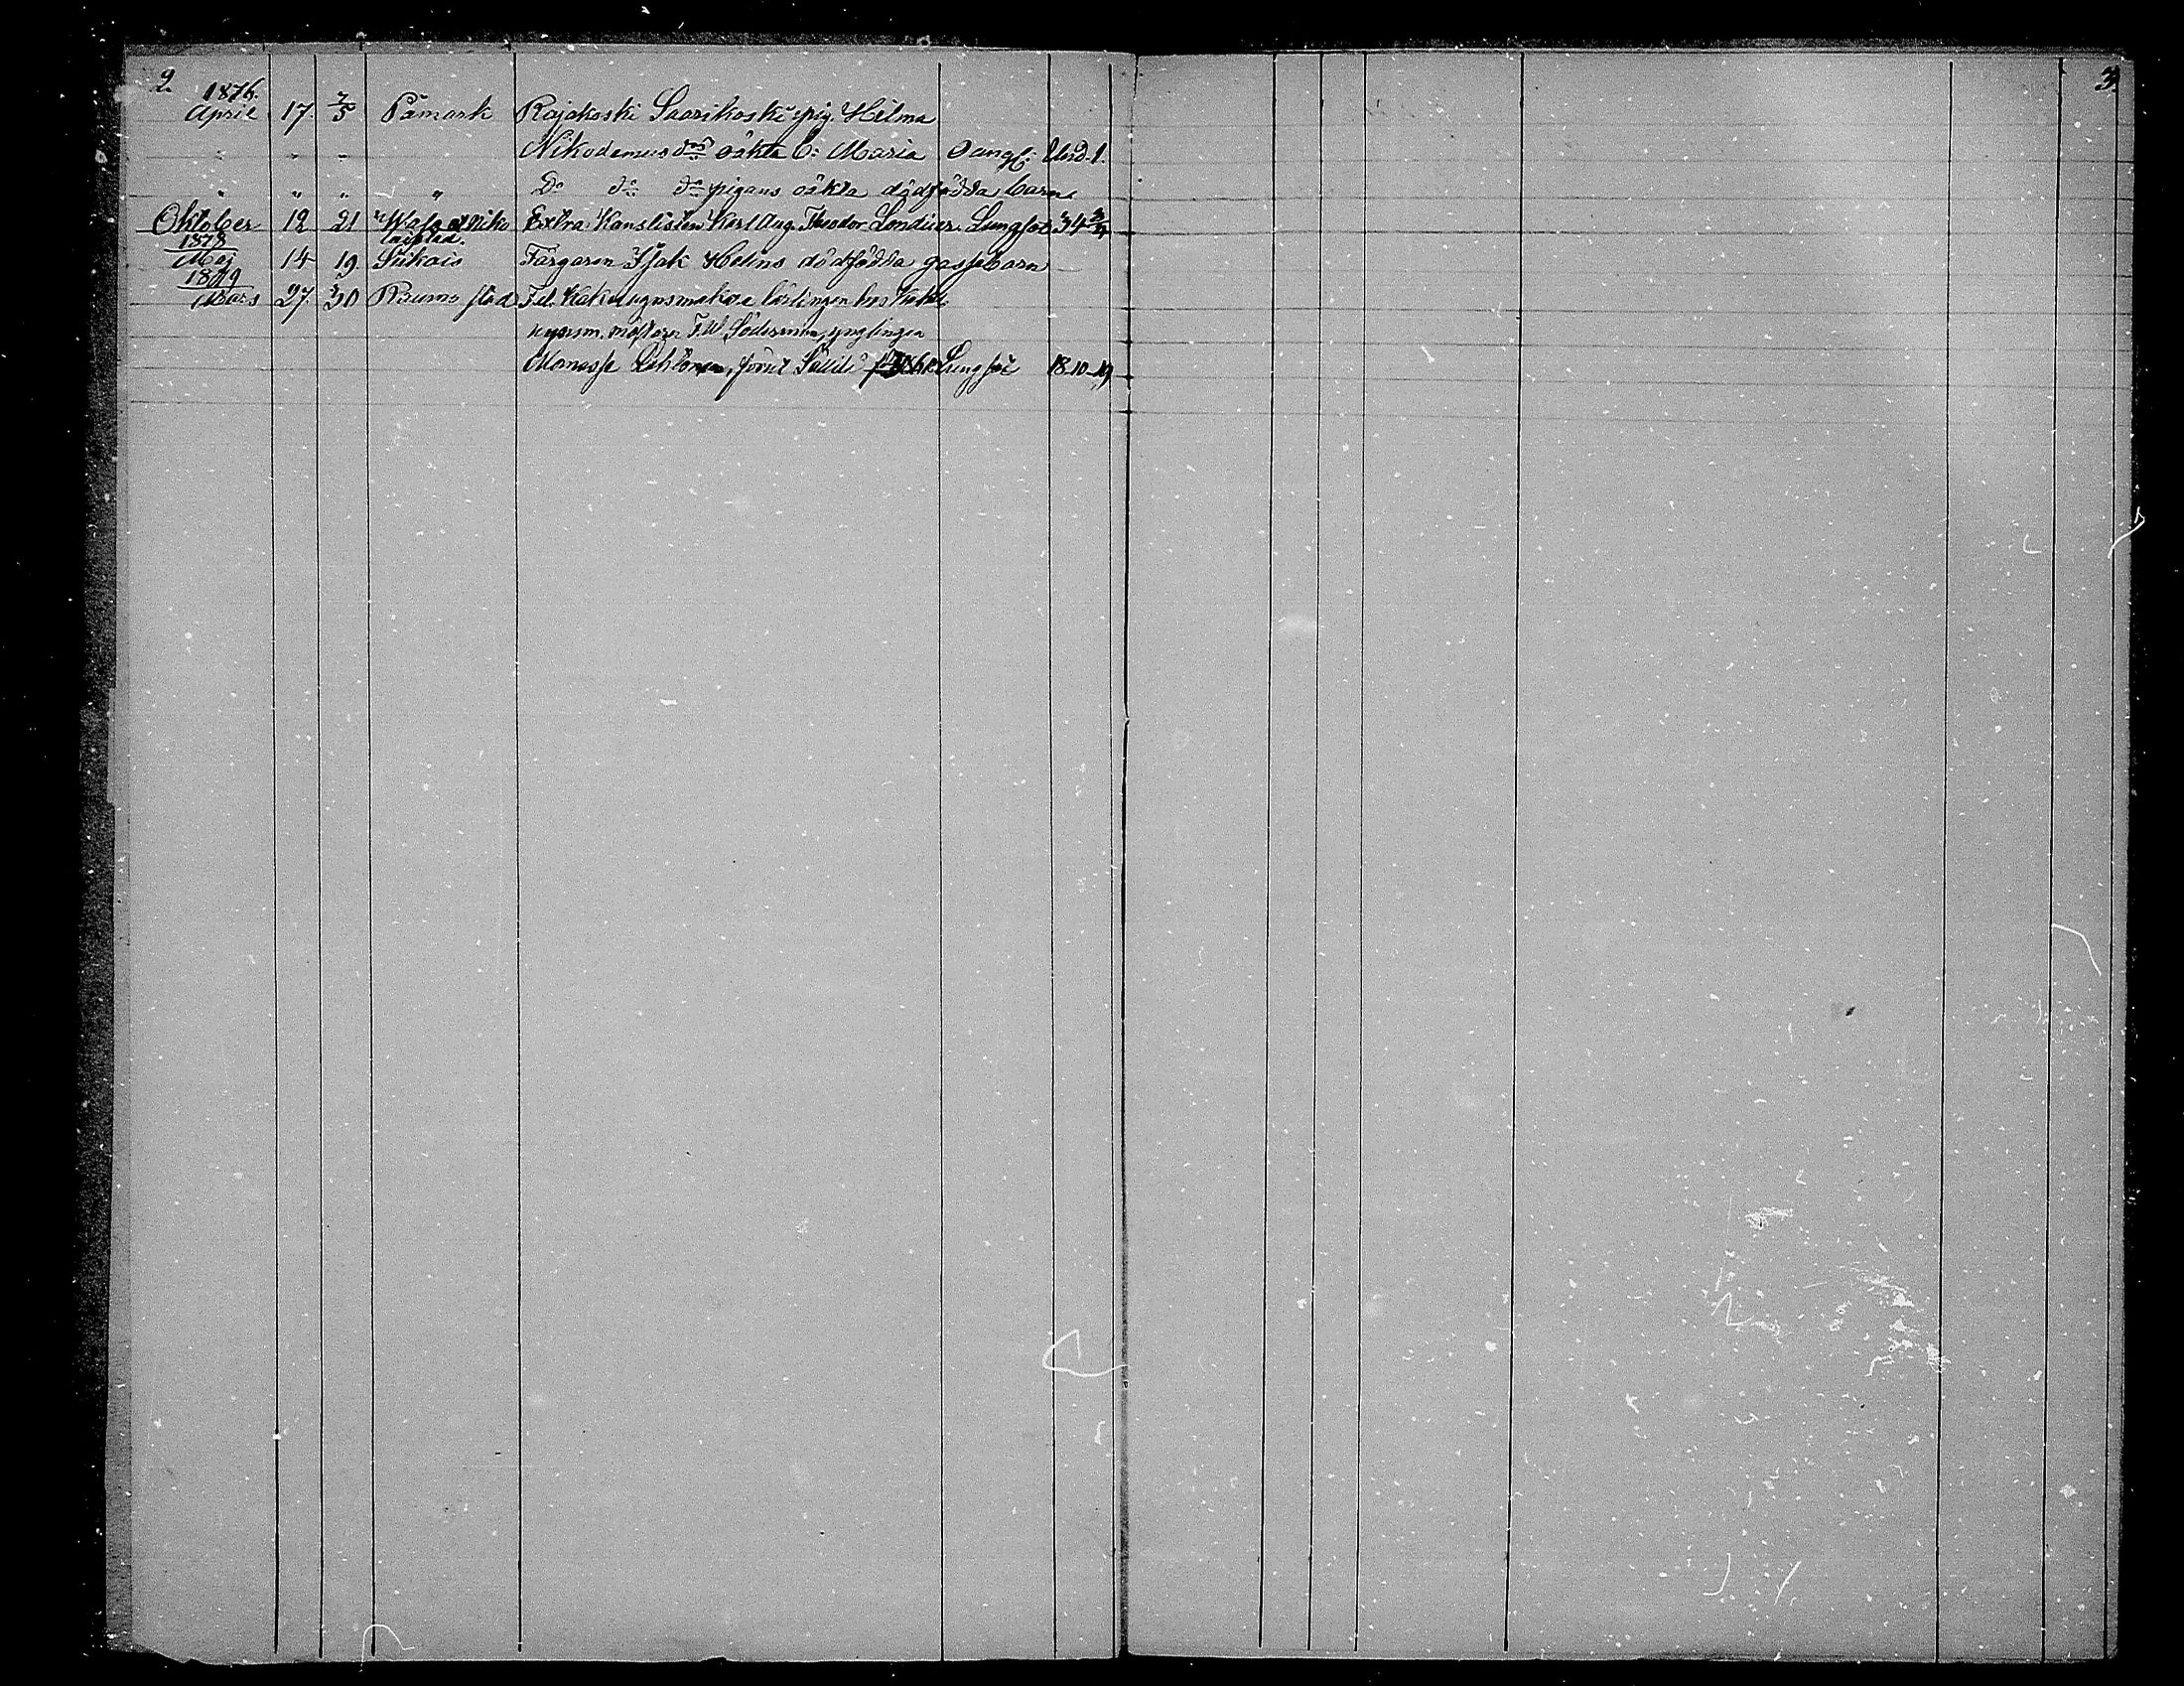 2. 3.
1876.
April 17. 7/5 Påmark Rajakoski Saarikoski pig. Hilma
" " " Nikodemus d:r oäkta b: Maria Oangf: Und. 1.
" " " " D:o d:o d:o pigans oäkta dödfödda barn
Oktober 12 21 Wasa Extra Kanslisten Karl Aug. Theodor Lungsot 34
1878
Maj 14 19. Siikais Färgaren Isak Helins dödfödda gossebarn
1879
Mars 27. 30 Raumo stad F.d. Kakelugnsmakare lärlingen hos Kakel
mästaren F.W. Söderman, ynglingen
Manasse Lehtonen, förut Lungsot 18-10-19